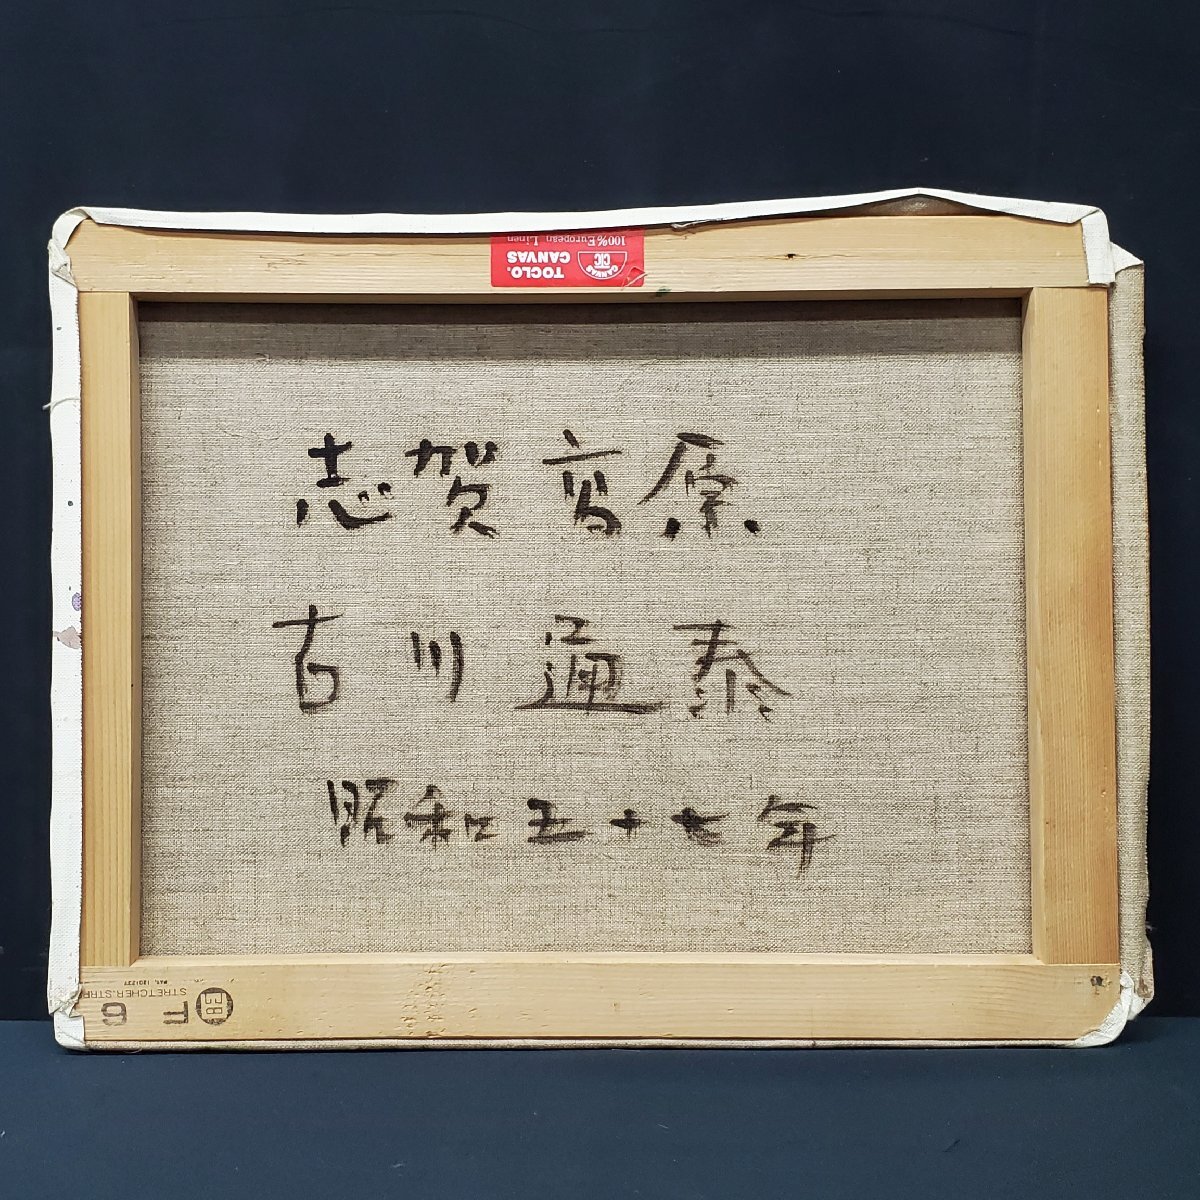 100% European Linen
TOCLO.
CANVAS
CANVAS
志賀高原
古川通泰
昭和五十七年
F 6
PAT. 1201237